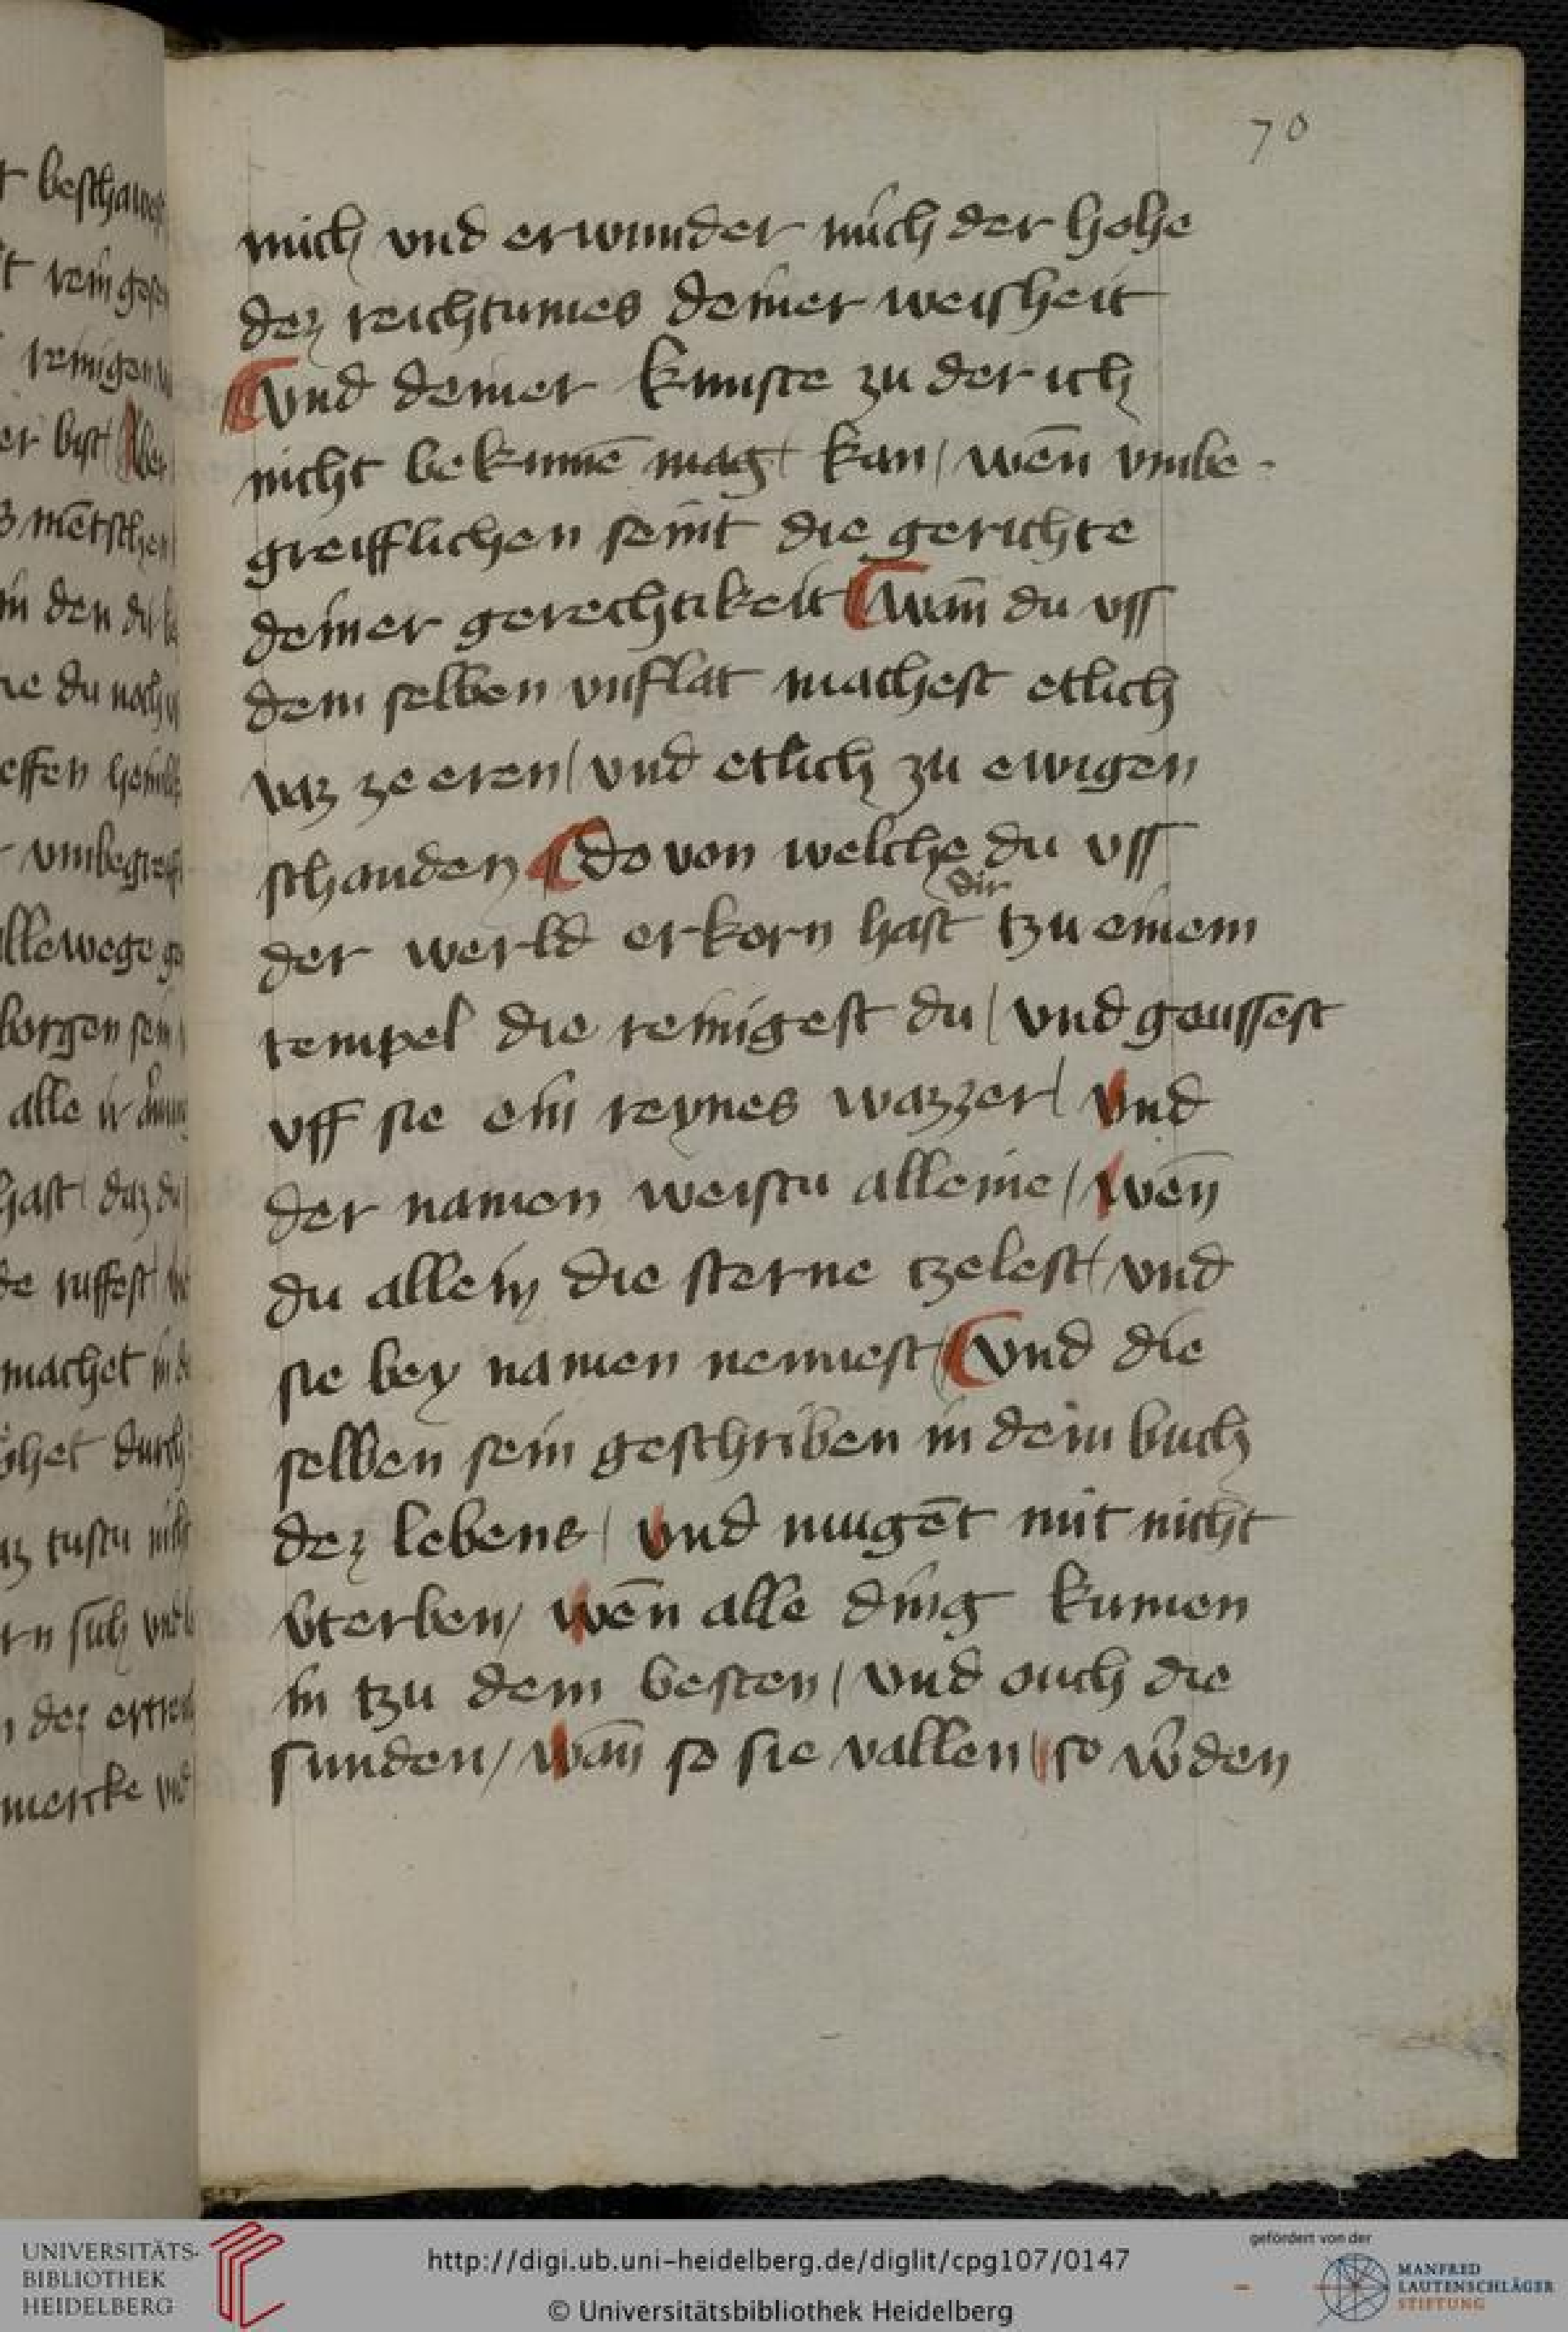 70
mich vnd erwunder mich der hohe
dez reichtumes deiner weisheit
vnd deiner kunste zu der ich
nicht bekumē mag kan / wēn vmbe-
greifflichen seint die gerichte
deiner gerechtikeit wañ du vss
dem selben vnflat machest etlich
vaz ze eren / vnd etlich zu ewigen
schanden do von welche du vss
dir
der werld erkorn hast tzu einem
tempel die reinigest du / vnd geussest
vff sie ein reynes wazzer / vnd
der namen weistu alleine / wēn
du allein die sterne tzelest / vnd
sie bey namen nennest / vnd die
selben sein geschriben in dein buch
dez lebens / vnd mugēt mit nicht
v̉terben / wēn alle ding kumen
in tzu dem besten / vnd ouch die
sunden / wan̄ so sie vallen / so w̉den
UNIVERSITÄTS-
BIBLIOTHEK
HEIDELBERG
http://digi.ub.uni-heidelberg.de/diglit/cpg107/0147
© Universitätsbibliothek Heidelberg
gefördert von der
MANFRED
LAUTENSCHLÄGER
STIFTUNG